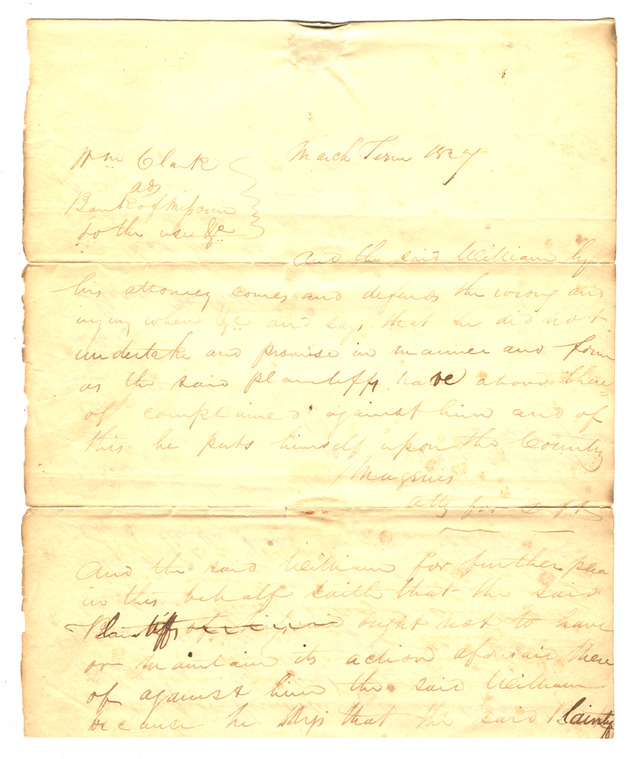 Wm Clark
March Term 1827
ads
Bank of Missouri
to the use &c
And the said William by
his attorney comes and defends the wrong and
injury when &c and says that he did not
undertake and promise in manner and form
as the said plaintiffs have above there
of complained against him and of
this he puts himself upon the Country
Magenis
atty for Deft
And the said William for further plea
in this behalf saith that the said
Plaintiffs ought not to have
or maintain its action aforesaid there
of against him the said William
because he says that the said Plaintiff